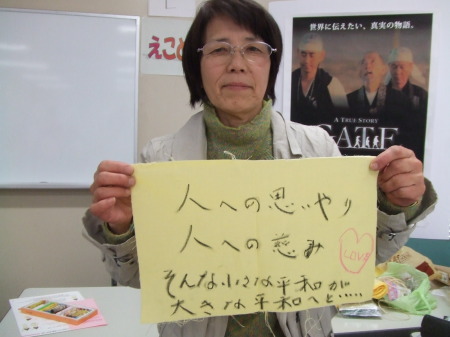 えこ
世界に伝えたい、真実の物語。
A TRUE STORY
GATE
人への思いやり
人への慈み
LOVE
そんな小さな平和が
大きな平和へと……